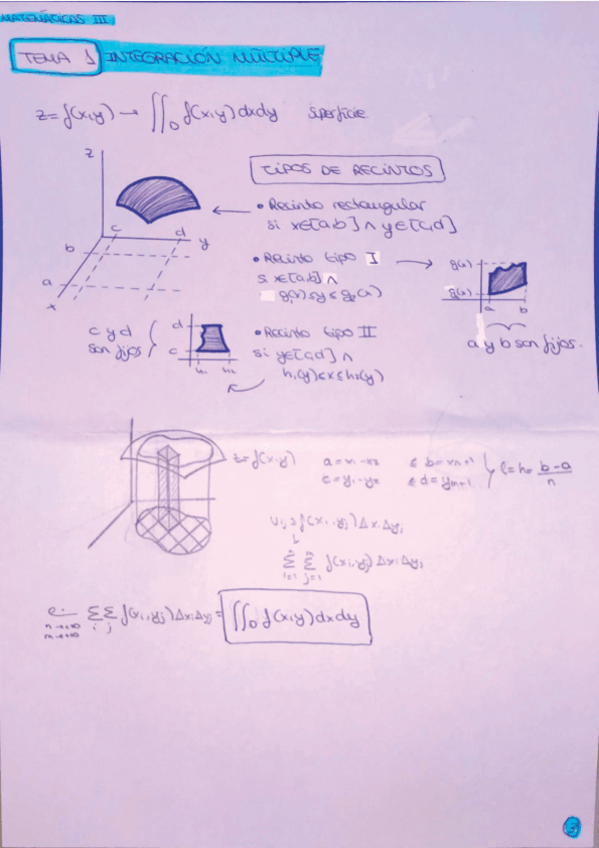 MATEMÁTICAS III
TEMA 1 INTEGRACIÓN MÚLTIPLE
z=f(x,y) → ∬_D f(x,y)dxdy superficie
TIPOS DE RECINTOS
z
c
d
y
b
a
x
• Recinto rectangular
si x∈[a,b] ∧ y∈[c,d]
• Recinto tipo I
si x∈[a,b] ∧
g₁(x)≤y≤g₂(x)
g(x)
g(x)
a b
a y b son fijos.
c y d
son fijos
d
c
h₁ h₂
• Recinto tipo II
si y∈[c,d] ∧
h₁(y)≤x≤h₂(y)
z=f(x,y)
a=x₁-x₂ b=xn+1
c=y₁-y₂ d=ym+1
h= b-a/n
f(xi,yj)Δxi Δyj
Σ i=1 Σ j=1 f(xi,yj)Δxi Δyj
n→∞
m→∞
Σ i Σ j f(xi,yj)Δxi Δyj = ∬_D f(x,y)dxdy
3